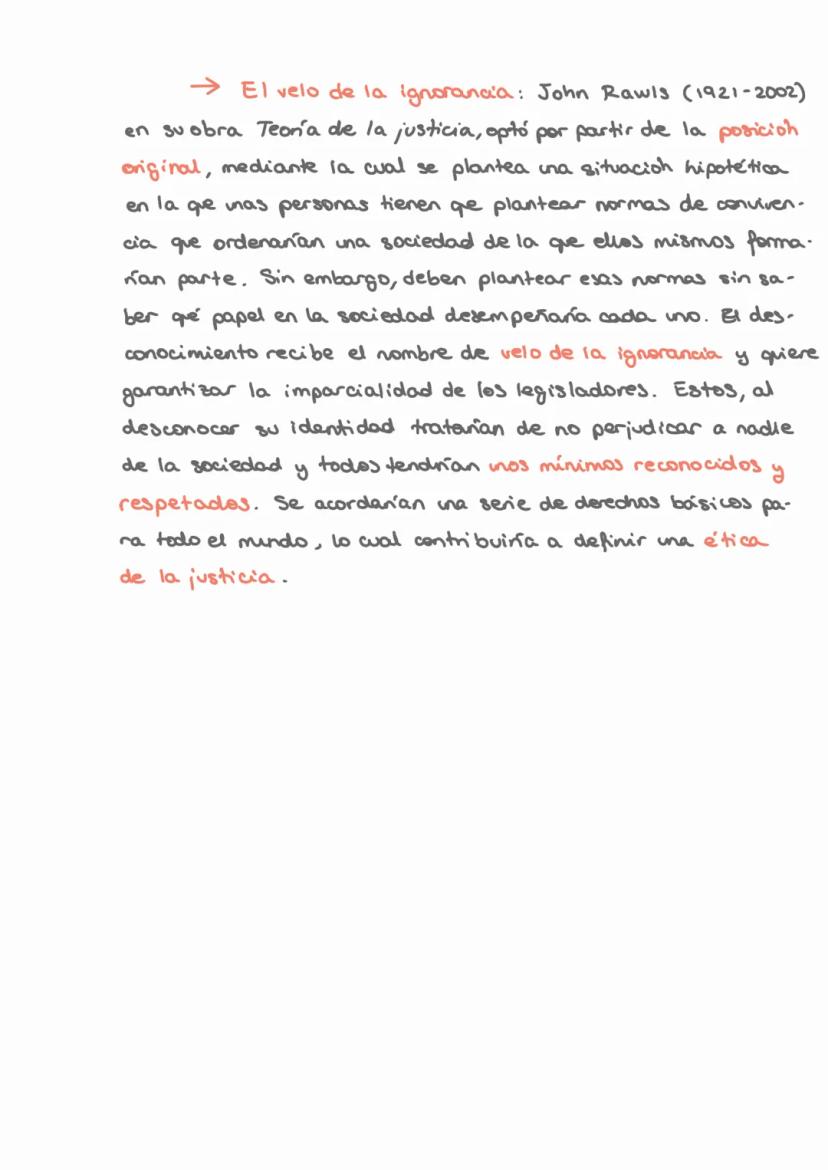 → El velo de la ignorancia: John Rawls (1921-2002)
en su obra Teoría de la justicia, optó por partir de la posición
original, mediante la cual se plantea una situación hipotética
en la que unas personas tienen que plantear normas de conviven-
cia que ordenarían una sociedad de la que ellos mismos forma-
rían parte. Sin embargo, deben plantear esas normas sin sa-
ber qué papel en la sociedad desempeñaría cada uno. El des-
conocimiento recibe el nombre de velo de la ignorancia y quiere
garantizar la imparcialidad de los legisladores. Estos, al
desconocer su identidad tratarían de no perjudicar a nadie
de la sociedad y todos tendrían unos mínimos reconocidos y
respetados. Se acordarían una serie de derechos básicos pa-
ra todo el mundo, lo cual contribuiría a definir una ética
de la justicia.